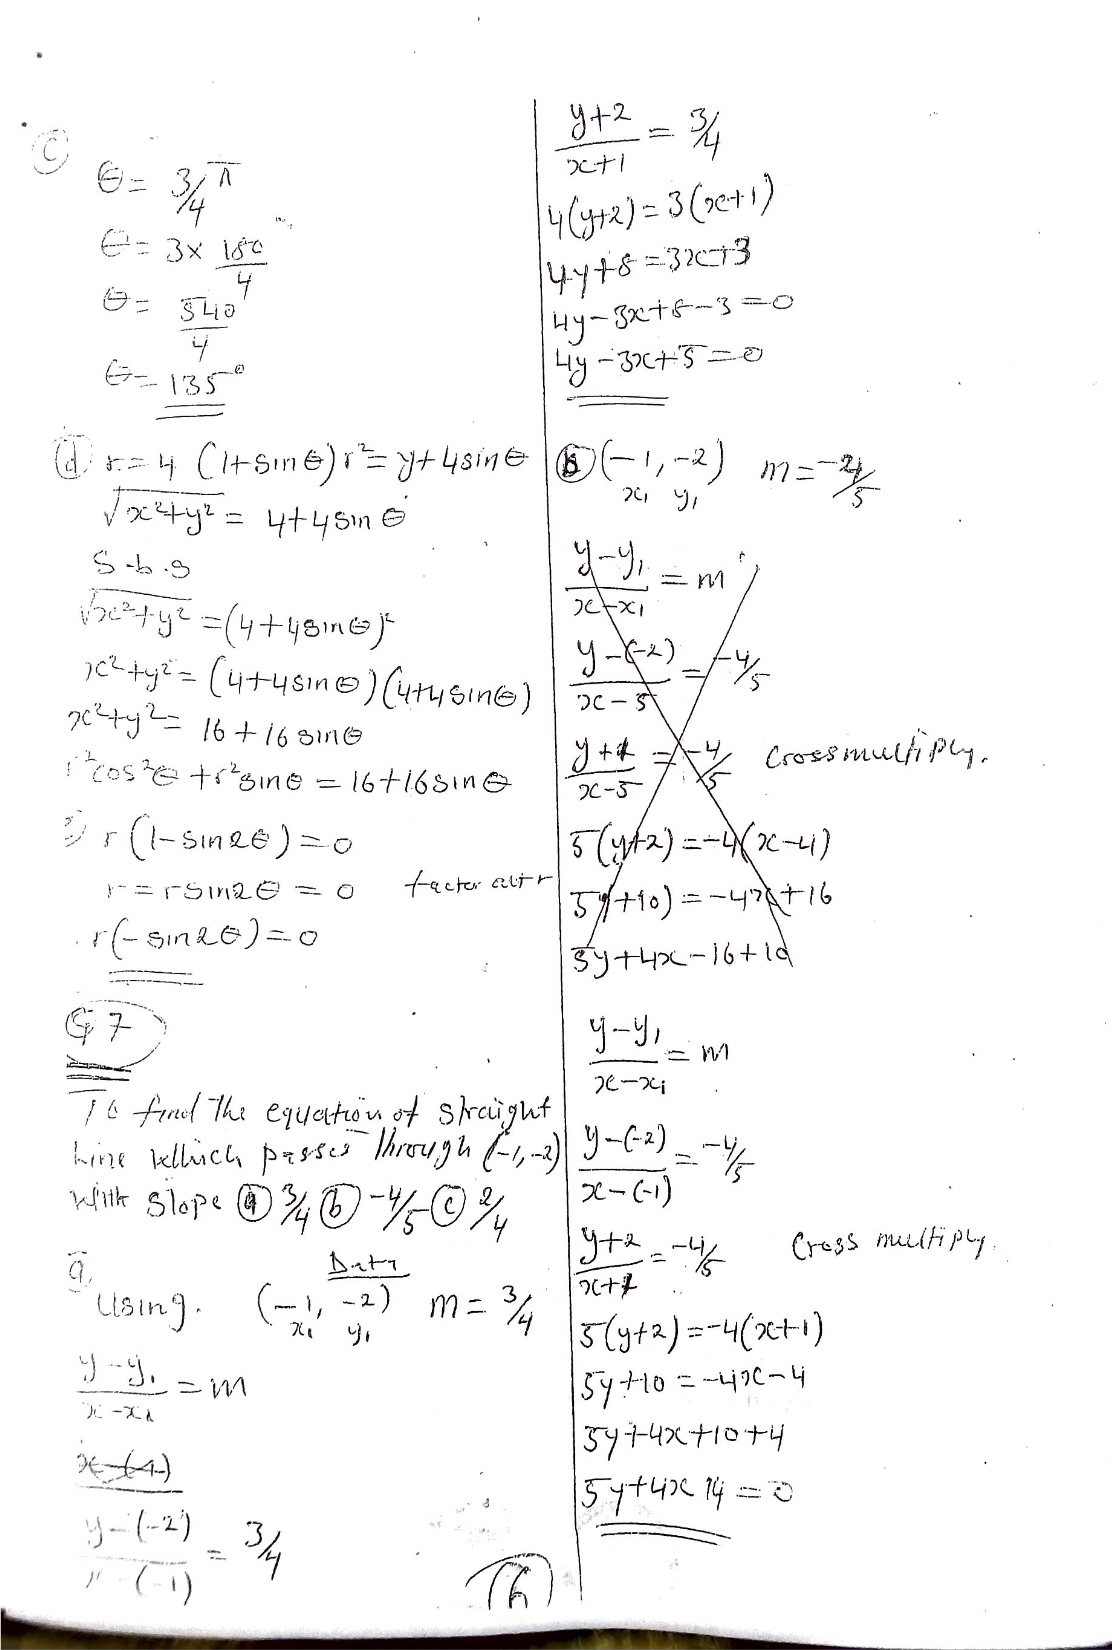 C
θ = 3/4 π
θ = 3 × 180/4
θ = 540/4
θ = 135°
(d) r = 4 (1+sinθ) r² = y+4sinθ
√x²+y² = 4+4sinθ
S.b.s
√x²+y² = (4+4sinθ)²
x²+y² = (4+4sinθ)(4+4sinθ)
x²+y² = 16+16sinθ
r²cos²θ + r²sinθ = 16+16sinθ
r(1-sin2θ) = 0
r = rsin2θ = 0 factor out r
r(-sin2θ) = 0
Q7
To find the equation of straight
line which passes through (-1,-2)
with slope (a) 3/4 (b) -4/5 (c) 2/4
a,
Data
Using. (-1, -2) m = 3/4
x₁ y₁
y-y₁/x-x₁ = m
x-(1)
y-(-2)/x-(-1) = 3/4
y+2/x+1 = 3/4
4(y+2) = 3(x+1)
4y+8 = 3x+3
4y-3x+8-3 = 0
4y-3x+5 = 0
(b) (-1, -2) m = -4/5
x₁ y₁
y-y₁/x-x₁ = m
y-(-2)/x-5 = -4/5
y+2/x-5 = -4/5 Crossmultiply.
5(y+2) = -4(x-4)
5y+10) = -4x+16
5y+4x-16+10
y-y₁/x-x₁ = m
y-(-2)/x-(-1) = -4/5
y+2/x+1 = -4/5 Cross multiply.
5(y+2) = -4(x+1)
5y+10 = -4x-4
5y+4x+10+4
5y+4x 14 = 0
16